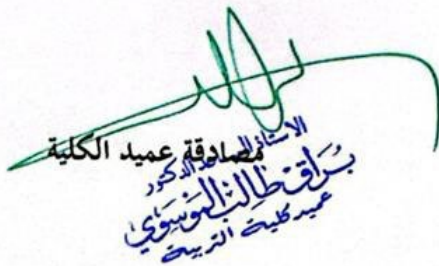 مصادقة عميد الكلية
الاستاذ الدكتور
براق طالب الموسوي
عميد كلية التربية